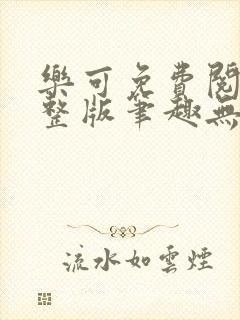 樂可免費閱
整版筆趣無
流水如雲煙